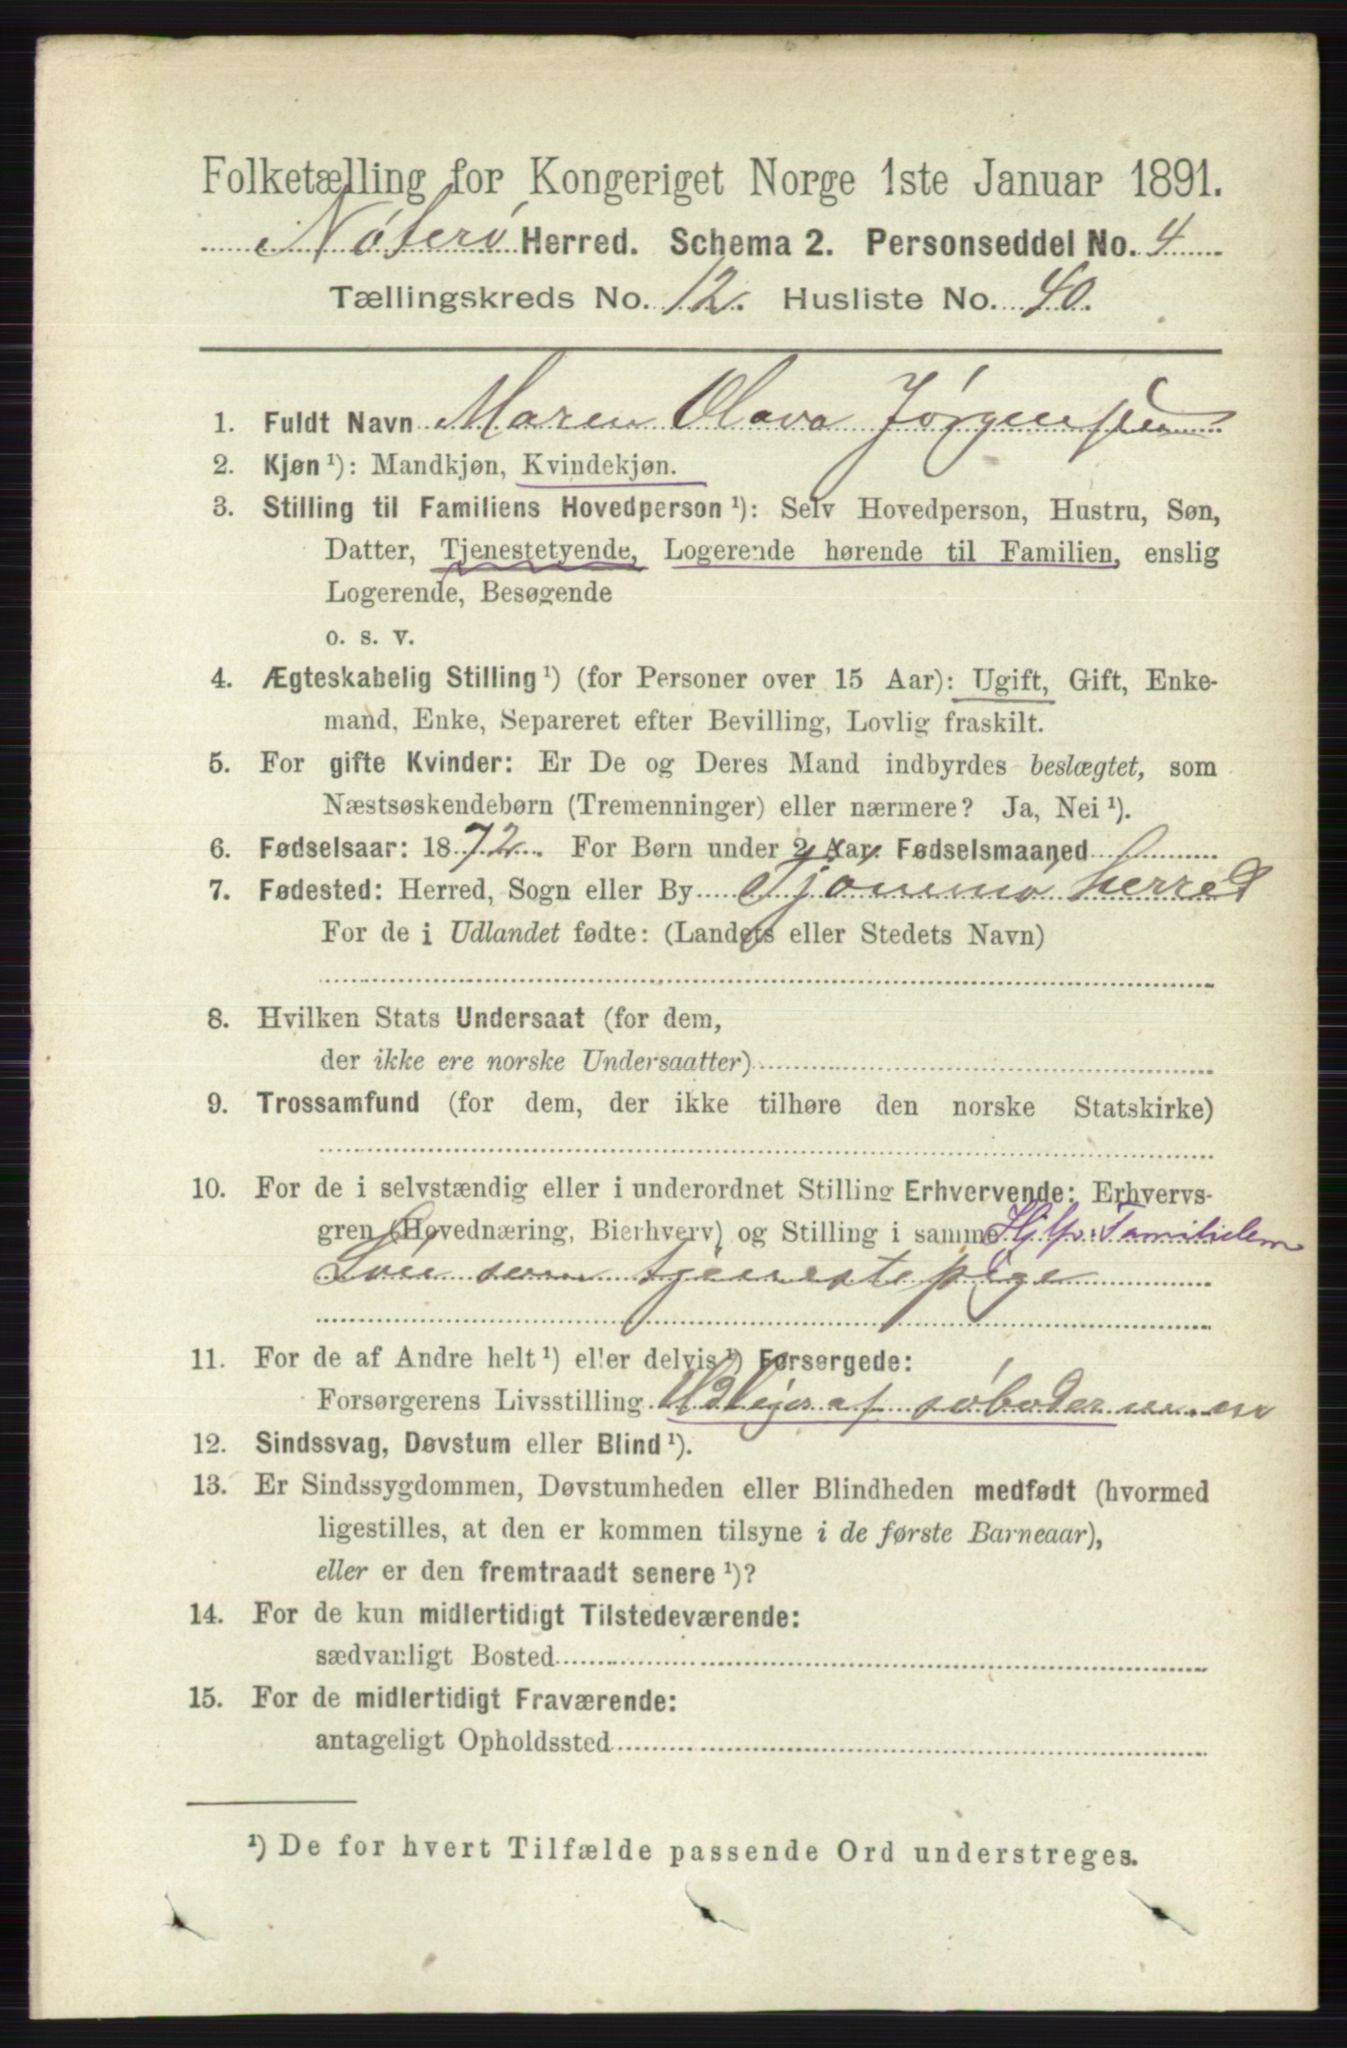 Folketælling for Kongeriget Norge 1ste Januar 1891.
Nøterø Herred. Schema 2. Personseddel No. 4
Tællingskreds No. 12. Husliste No. 40.
1. Fuldt Navn Maren Olava Jørgensen
2. Kjøn ¹): Mandkjøn, Kvindekjøn.
3. Stilling til Familiens Hovedperson ¹): Selv Hovedperson, Hustru, Søn,
Datter, Tjenestetyende, Logerende hørende til Familien, enslig
Logerende, Besøgende
o. s. v.
4. Ægteskabelig Stilling ¹) (for Personer over 15 Aar): Ugift, Gift, Enke-
mand, Enke, Separeret efter Bevilling, Lovlig fraskilt.
5. For gifte Kvinder: Er De og Deres Mand indbyrdes beslægtet, som
Næstsøskendebørn (Tremenninger) eller nærmere? Ja, Nei ¹).
6. Fødselsaar: 1872. For Børn under 2 Aar: Fødselsmaaned
7. Fødested: Herred, Sogn eller By Tjømmø herred
For de i Udlandet fødte: (Landets eller Stedets Navn)
8. Hvilken Stats Undersaat (for dem,
der ikke ere norske Undersaatter)
9. Trossamfund (for dem, der ikke tilhøre den norske Statskirke)
10. For de i selvstændig eller i underordnet Stilling Erhvervende: Erhvervs-
gren (Hovednæring, Bierhverv) og Stilling i samme
som tjenestepige
11. For de af Andre helt ¹) eller delvis ¹) Forsørgede:
Forsørgerens Livsstilling af
12. Sindssvag, Døvstum eller Blind ¹).
13. Er Sindssygdommen, Døvstumheden eller Blindheden medfødt (hvormed
ligestilles, at den er kommen tilsyne i de første Barneaar),
eller er den fremtraadt senere ¹)?
14. For de kun midlertidigt Tilstedeværende:
sædvanligt Bosted
15. For de midlertidigt Fraværende:
antageligt Opholdssted
¹) De for hvert Tilfælde passende Ord understreges.